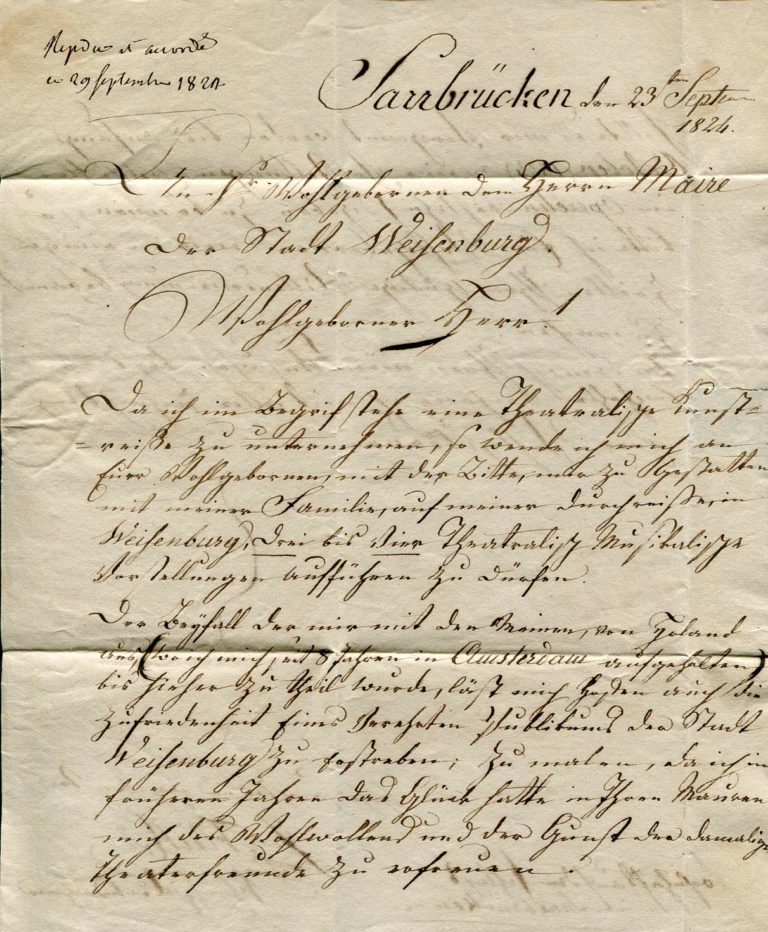 Repdu et accordé
ce 29 septembre 1824
Sarrbrücken den 23ten Septem
1824.
An Sr Wohlgebornen dem Herrn Maire
der Stadt Weisenburg.
Wohlgeborner Herr!
Da ich im Begrif stehe eine Theatralische Kunst=
=reise zu unternehmen, so wende ich mich an
Euer Wohlgebornen, mit der Bitte, mir zu Gestatten
mit meiner Familie, auf meiner Durchreise, in
Weisenburg, Drei bis Vier Theatralisch Musikalische
Vorstellungen aufführen zu dürfen.
Der Beyfall der mir mit den Meinen, von Holand
aus (wo ich mich seit 8 Jahren in Amsterdam aufgehalten)
bis hieher zu theil wurde, läst mich hoffen auch die
Zufriedenheit Eines Verehrten Publikums der Stadt
Weisenburg zu erstreben; zu malen, da ich in
früheren Jahren das Glück hatte in Ihren Mauren
mich des Wohlwollens und der Gunst der damalige
Theaterfreunde zu erfreuen.